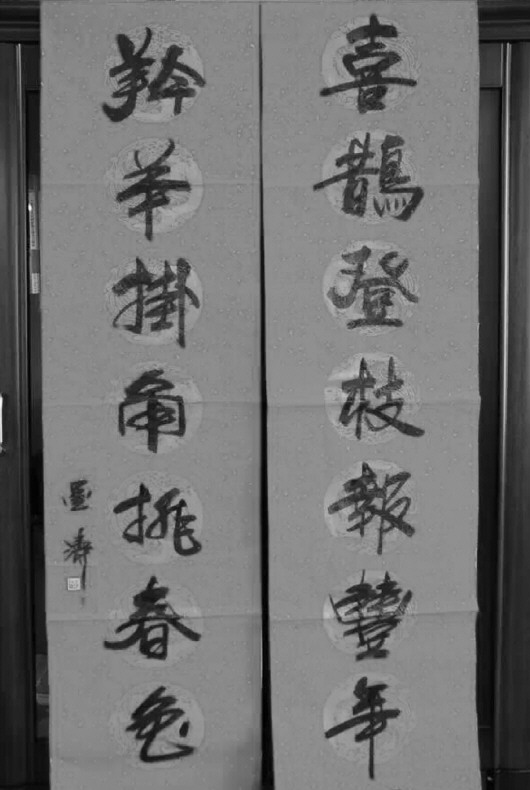 喜鵲登枝報豐年
羚羊掛角挑春色